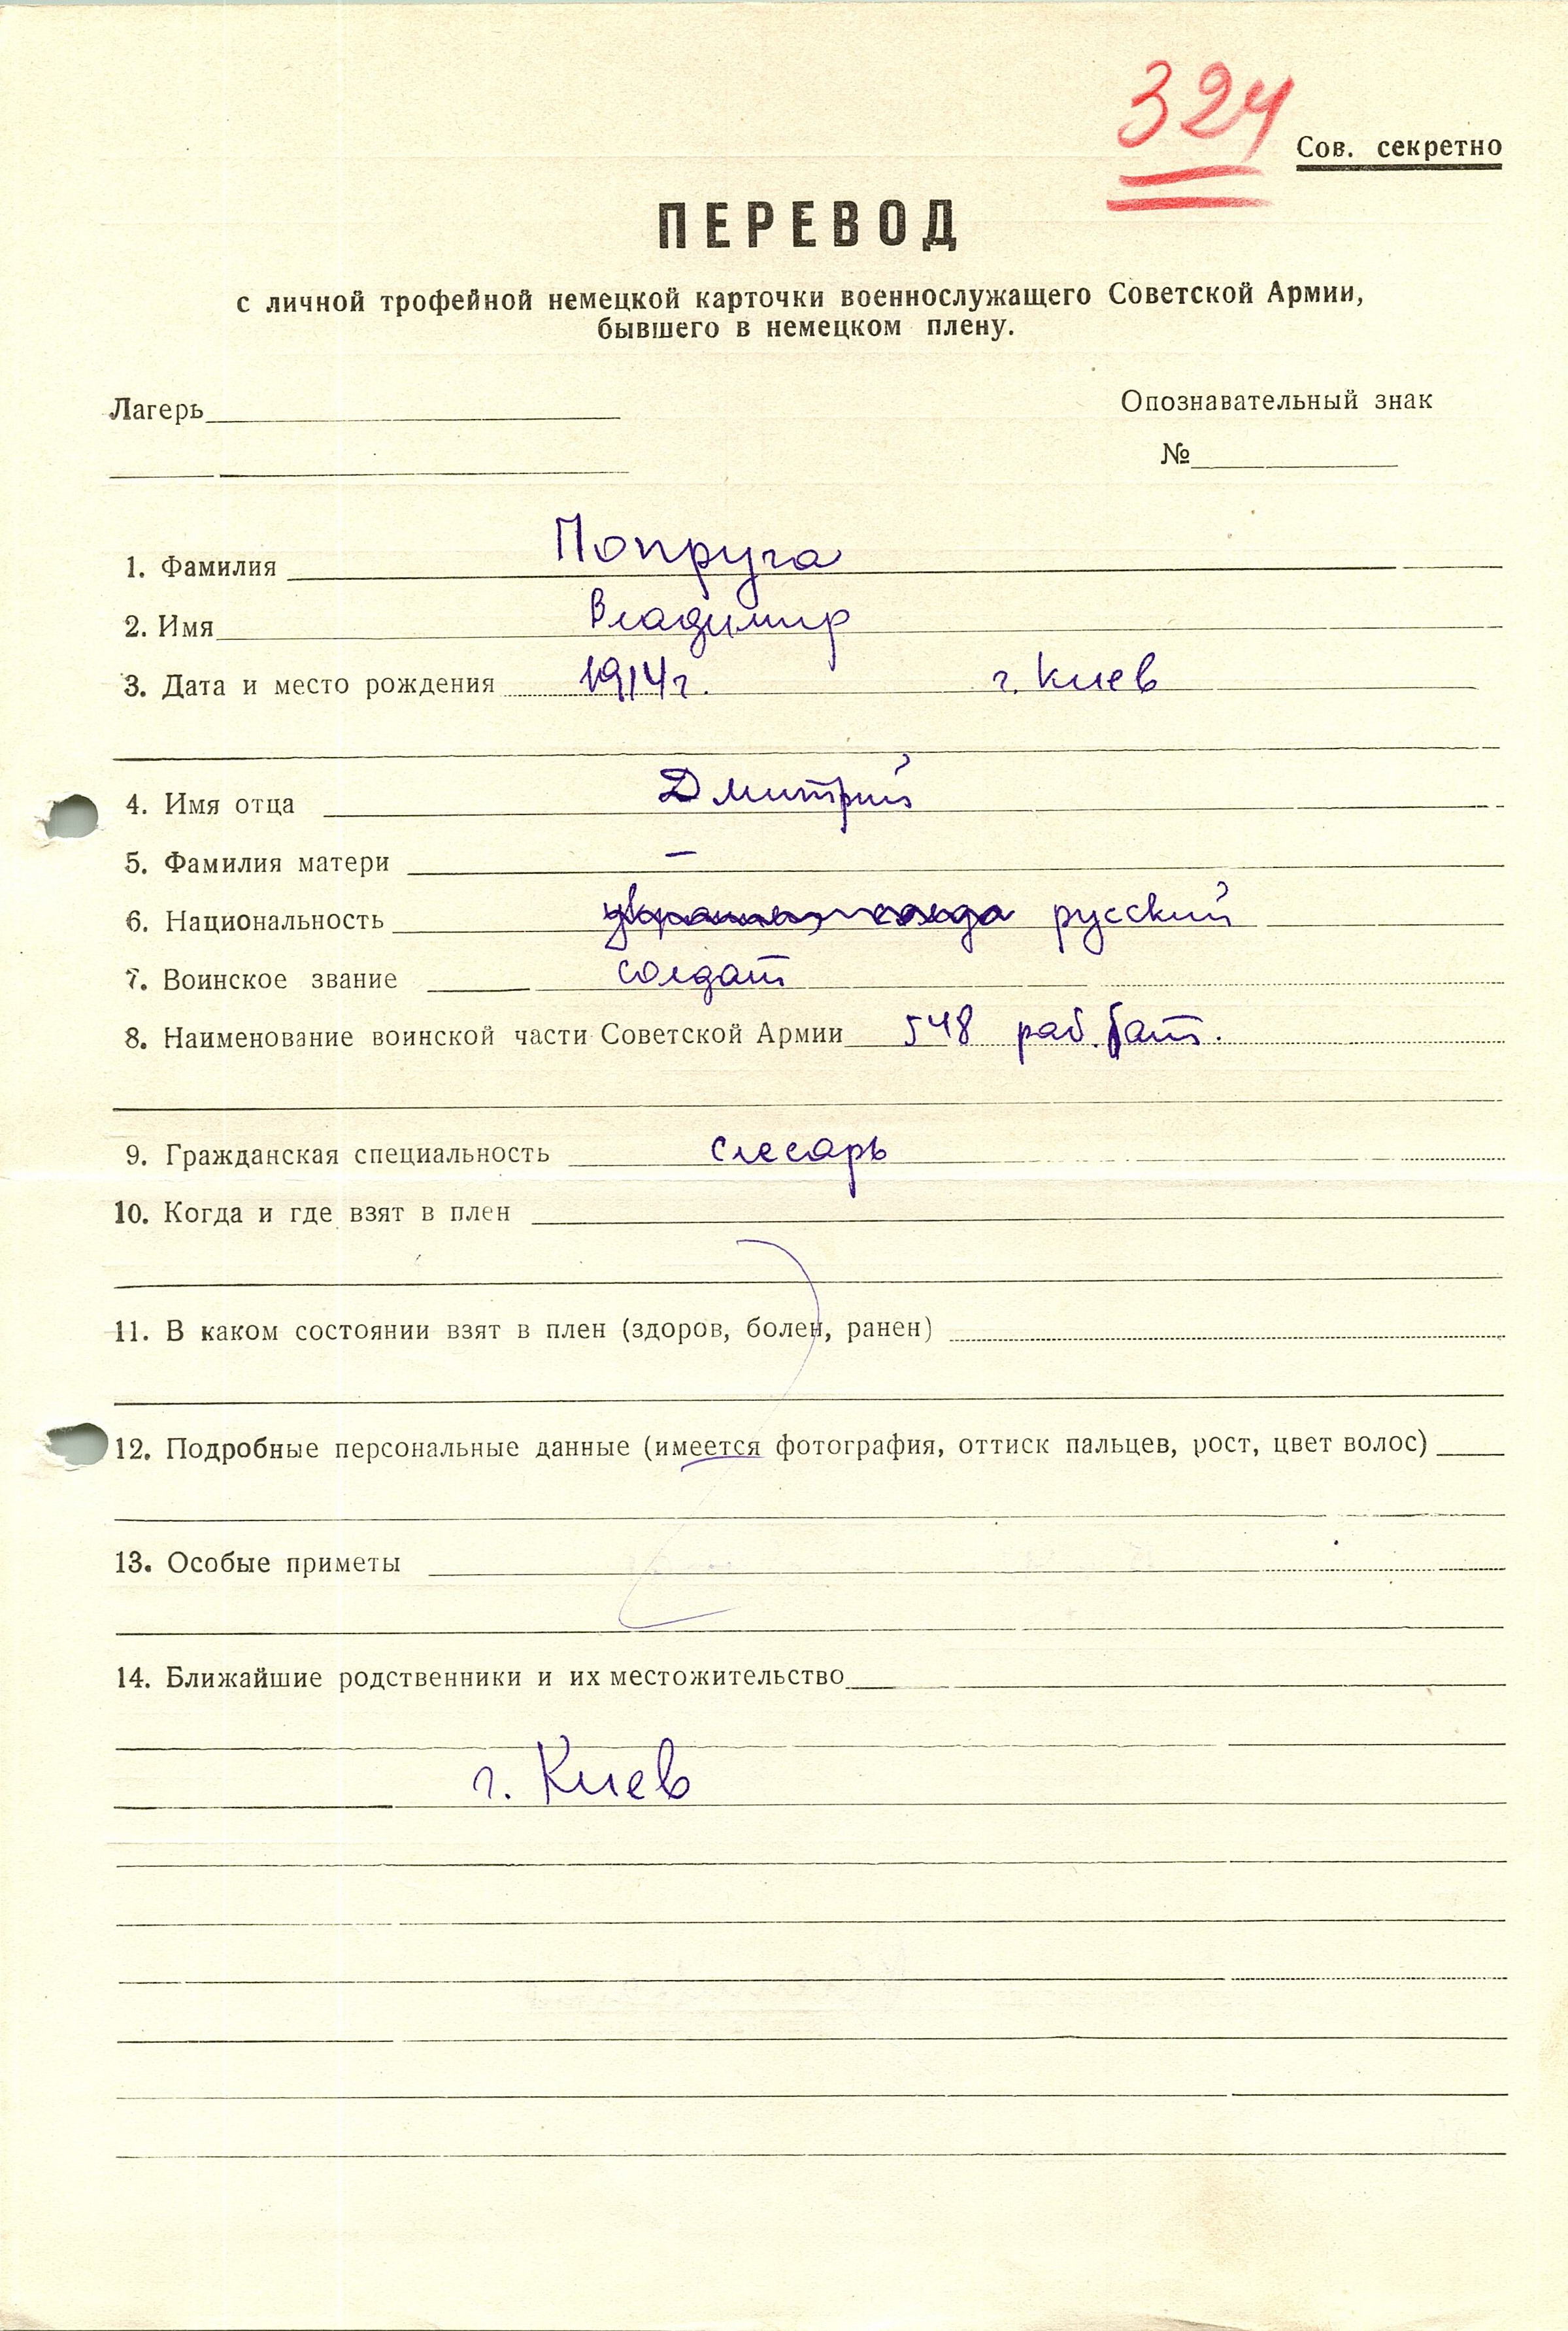 324
Сов. секретно
ПЕРЕВОД
с личной трофейной немецкой карточки военнослужащего Советской Армии,
бывшего в немецком плену.
Лагерь
Опознавательный знак
№
1. Фамилия Попруга
2. Имя Владимир
3. Дата и место рождения 1914г. г. Киев
4. Имя отца Дмитрий
5. Фамилия матери –
6. Национальность русский
7. Воинское звание солдат
8. Наименование воинской части Советской Армии 548 раб. бат.
9. Гражданская специальность слесарь
10. Когда и где взят в плен
11. В каком состоянии взят в плен (здоров, болен, ранен)
12. Подробные персональные данные (имеется фотография, оттиск пальцев, рост, цвет волос)
13. Особые приметы
14. Ближайшие родственники и их местожительство
г. Киев